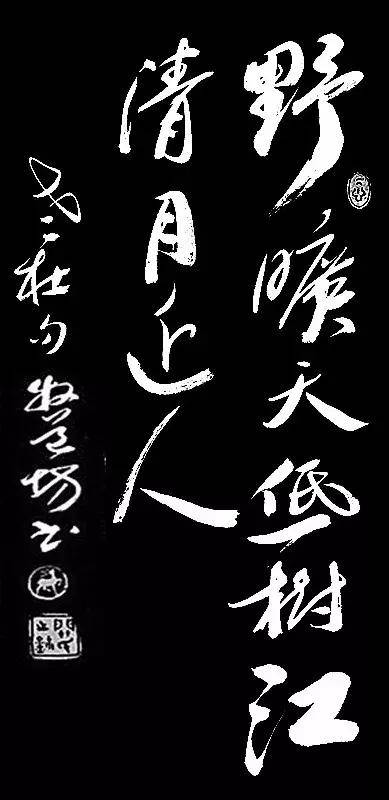 野曠天低樹江
清月近人
杜句
书